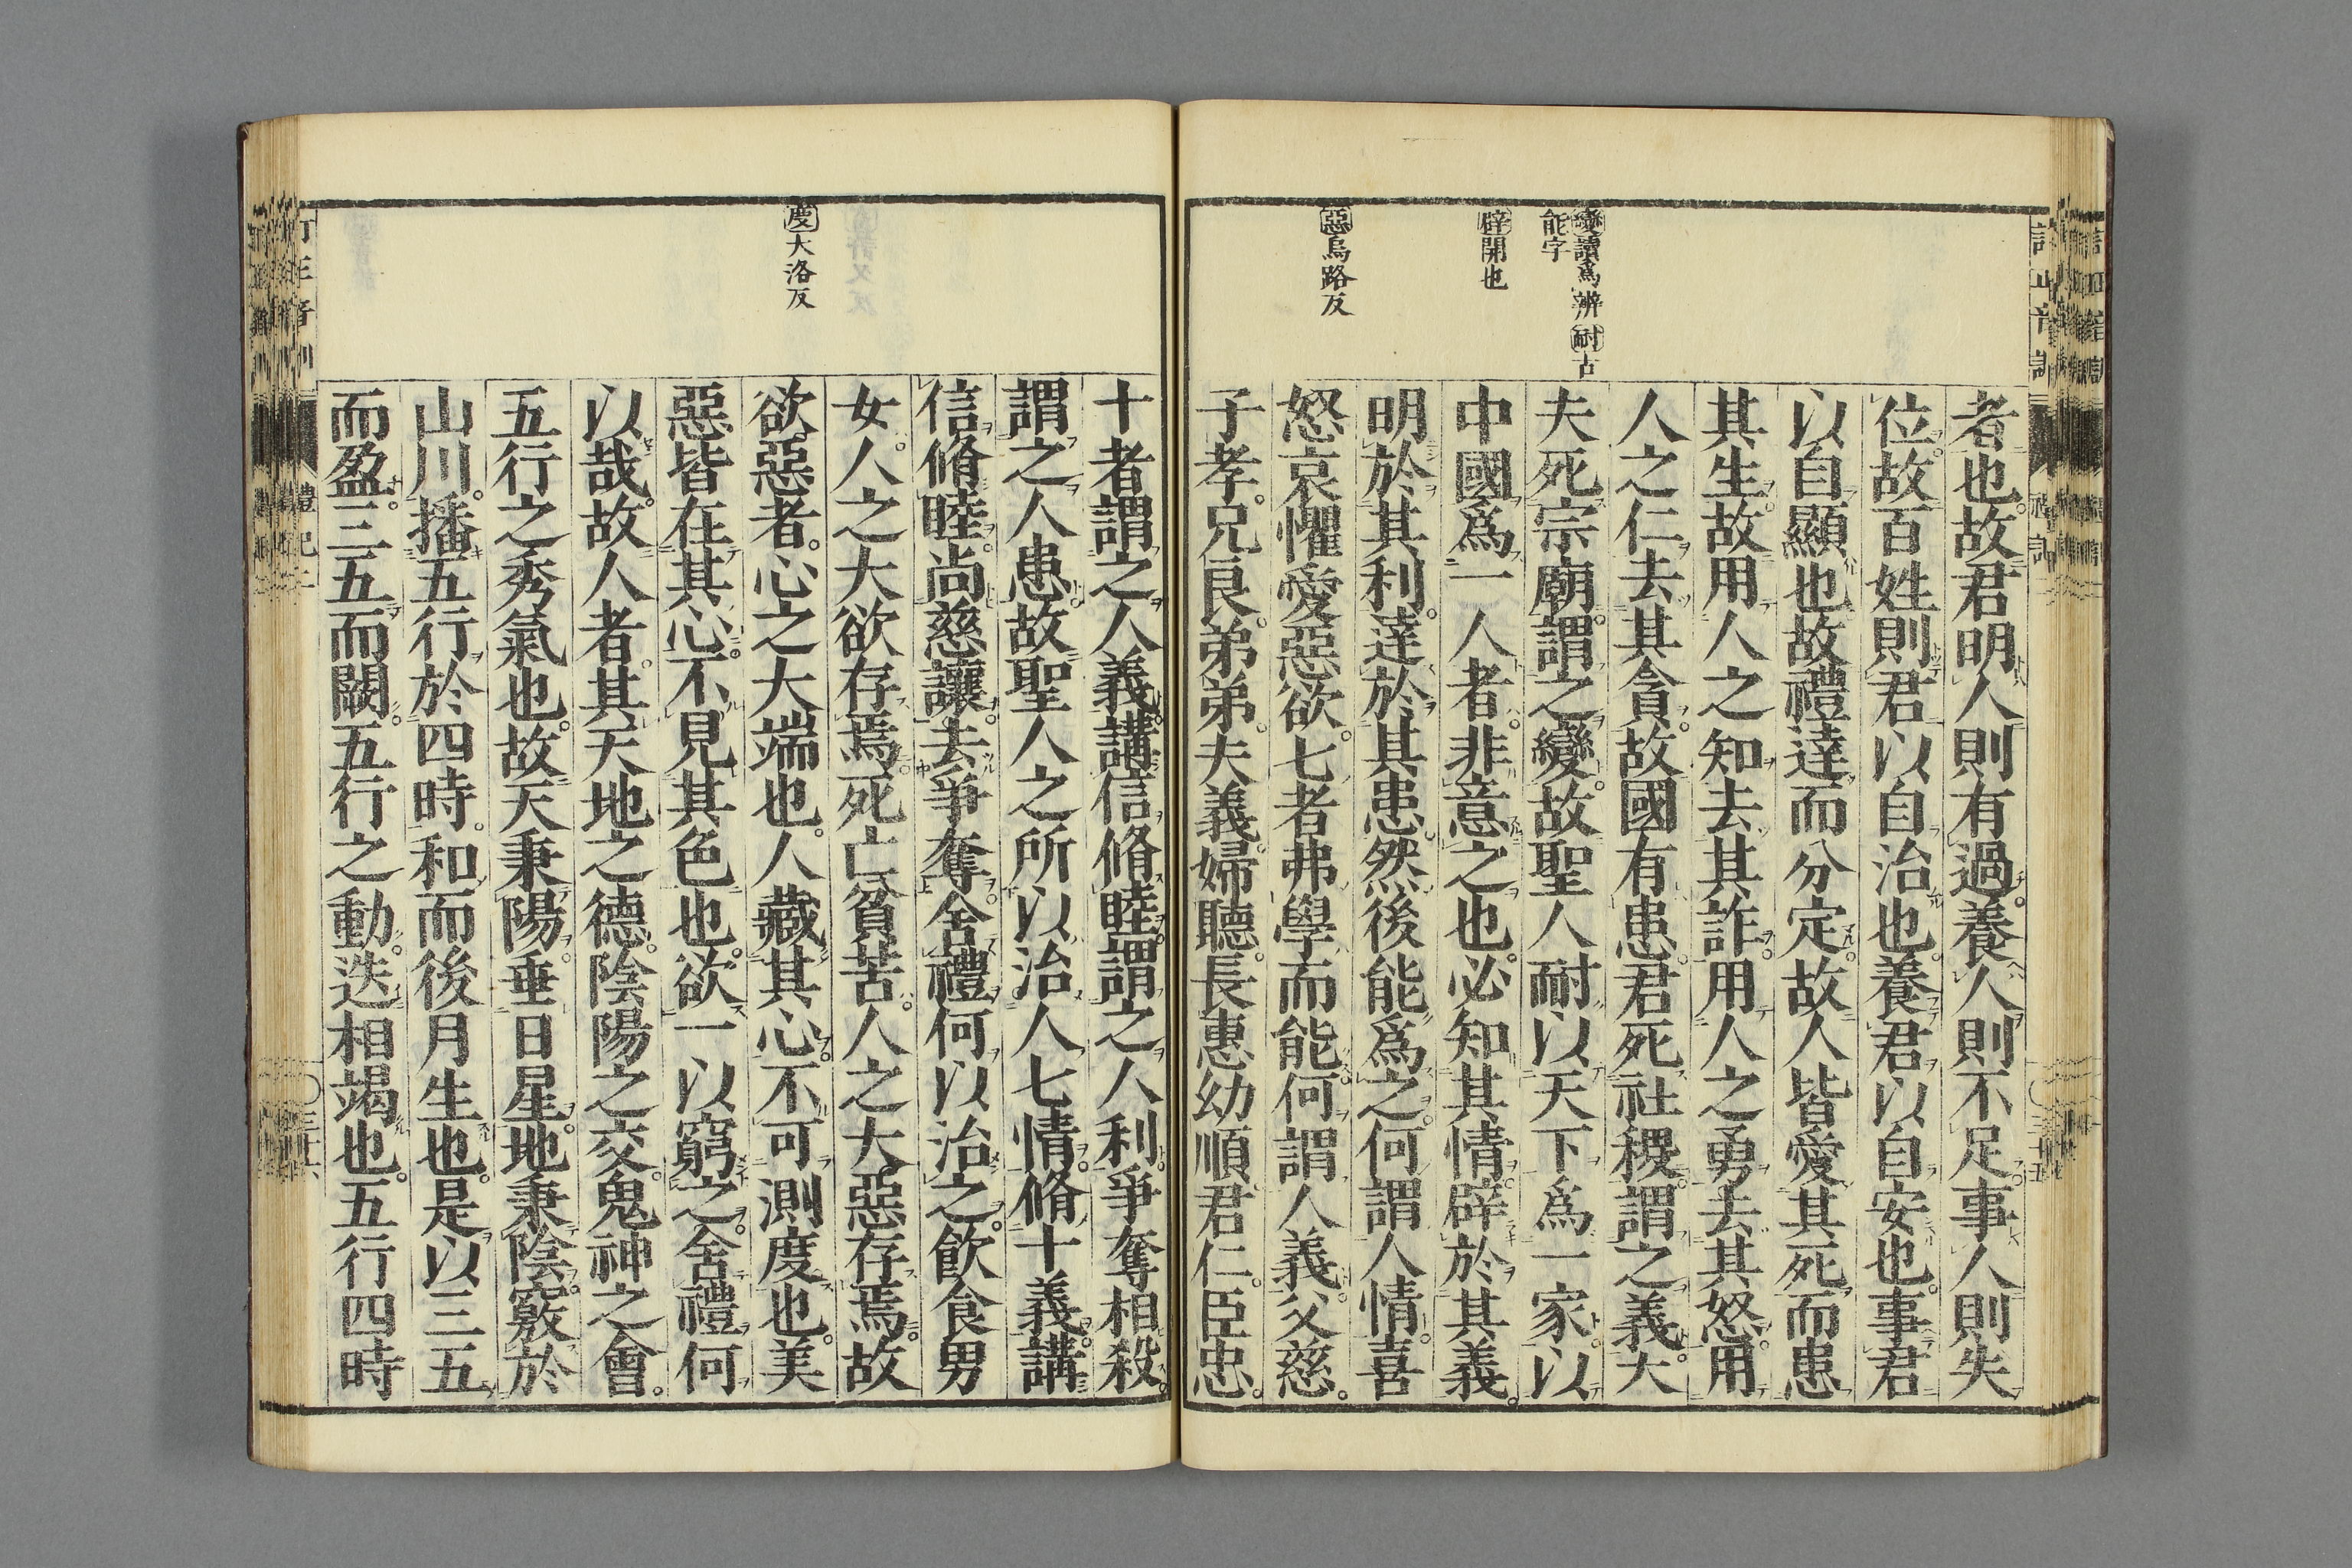 變讀爲辨耐古
能字
辟開也
惡烏路反
者也故君明人則有過養人則不足事人則失
位故百姓則君以自治也養君以自安也事君
以自顯也故禮達而分定故人皆愛其死而患
其生故用人之知去其詐用人之勇去其怒用
人之仁去其貪故國有患君死社稷謂之義大
夫死宗廟謂之變故聖人耐以天下爲一家以
中國爲一人者非意之也必知其情辟於其義
明於其利達於其患然後能爲之何謂人情喜
怒哀懼愛惡欲七者弗學而能何謂人義父慈
子孝兄良弟弟夫義婦聽長惠幼順君仁臣忠
度大洛反
十者謂之人義講信脩睦謂之人利爭奪相殺
謂之人患故聖人之所以治人七情脩十義講
信脩睦尚慈讓去爭奪舍禮何以治之飲食男
女人之大欲存焉死亡貧苦人之大惡存焉故
欲惡者心之大端也人藏其心不可測度也美
惡皆在其心不見其色也欲一以窮之舍禮何
以哉故人者其天地之德陰陽之交鬼神之會
五行之秀氣也故天秉陽垂日星地秉陰竅於
山川播五行於四時和而後月生也是以三五
而盈三五而闕五行之動迭相竭也五行四時